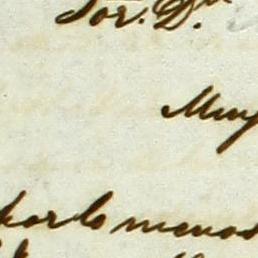 Sor. Dn
Muy
por lo menos